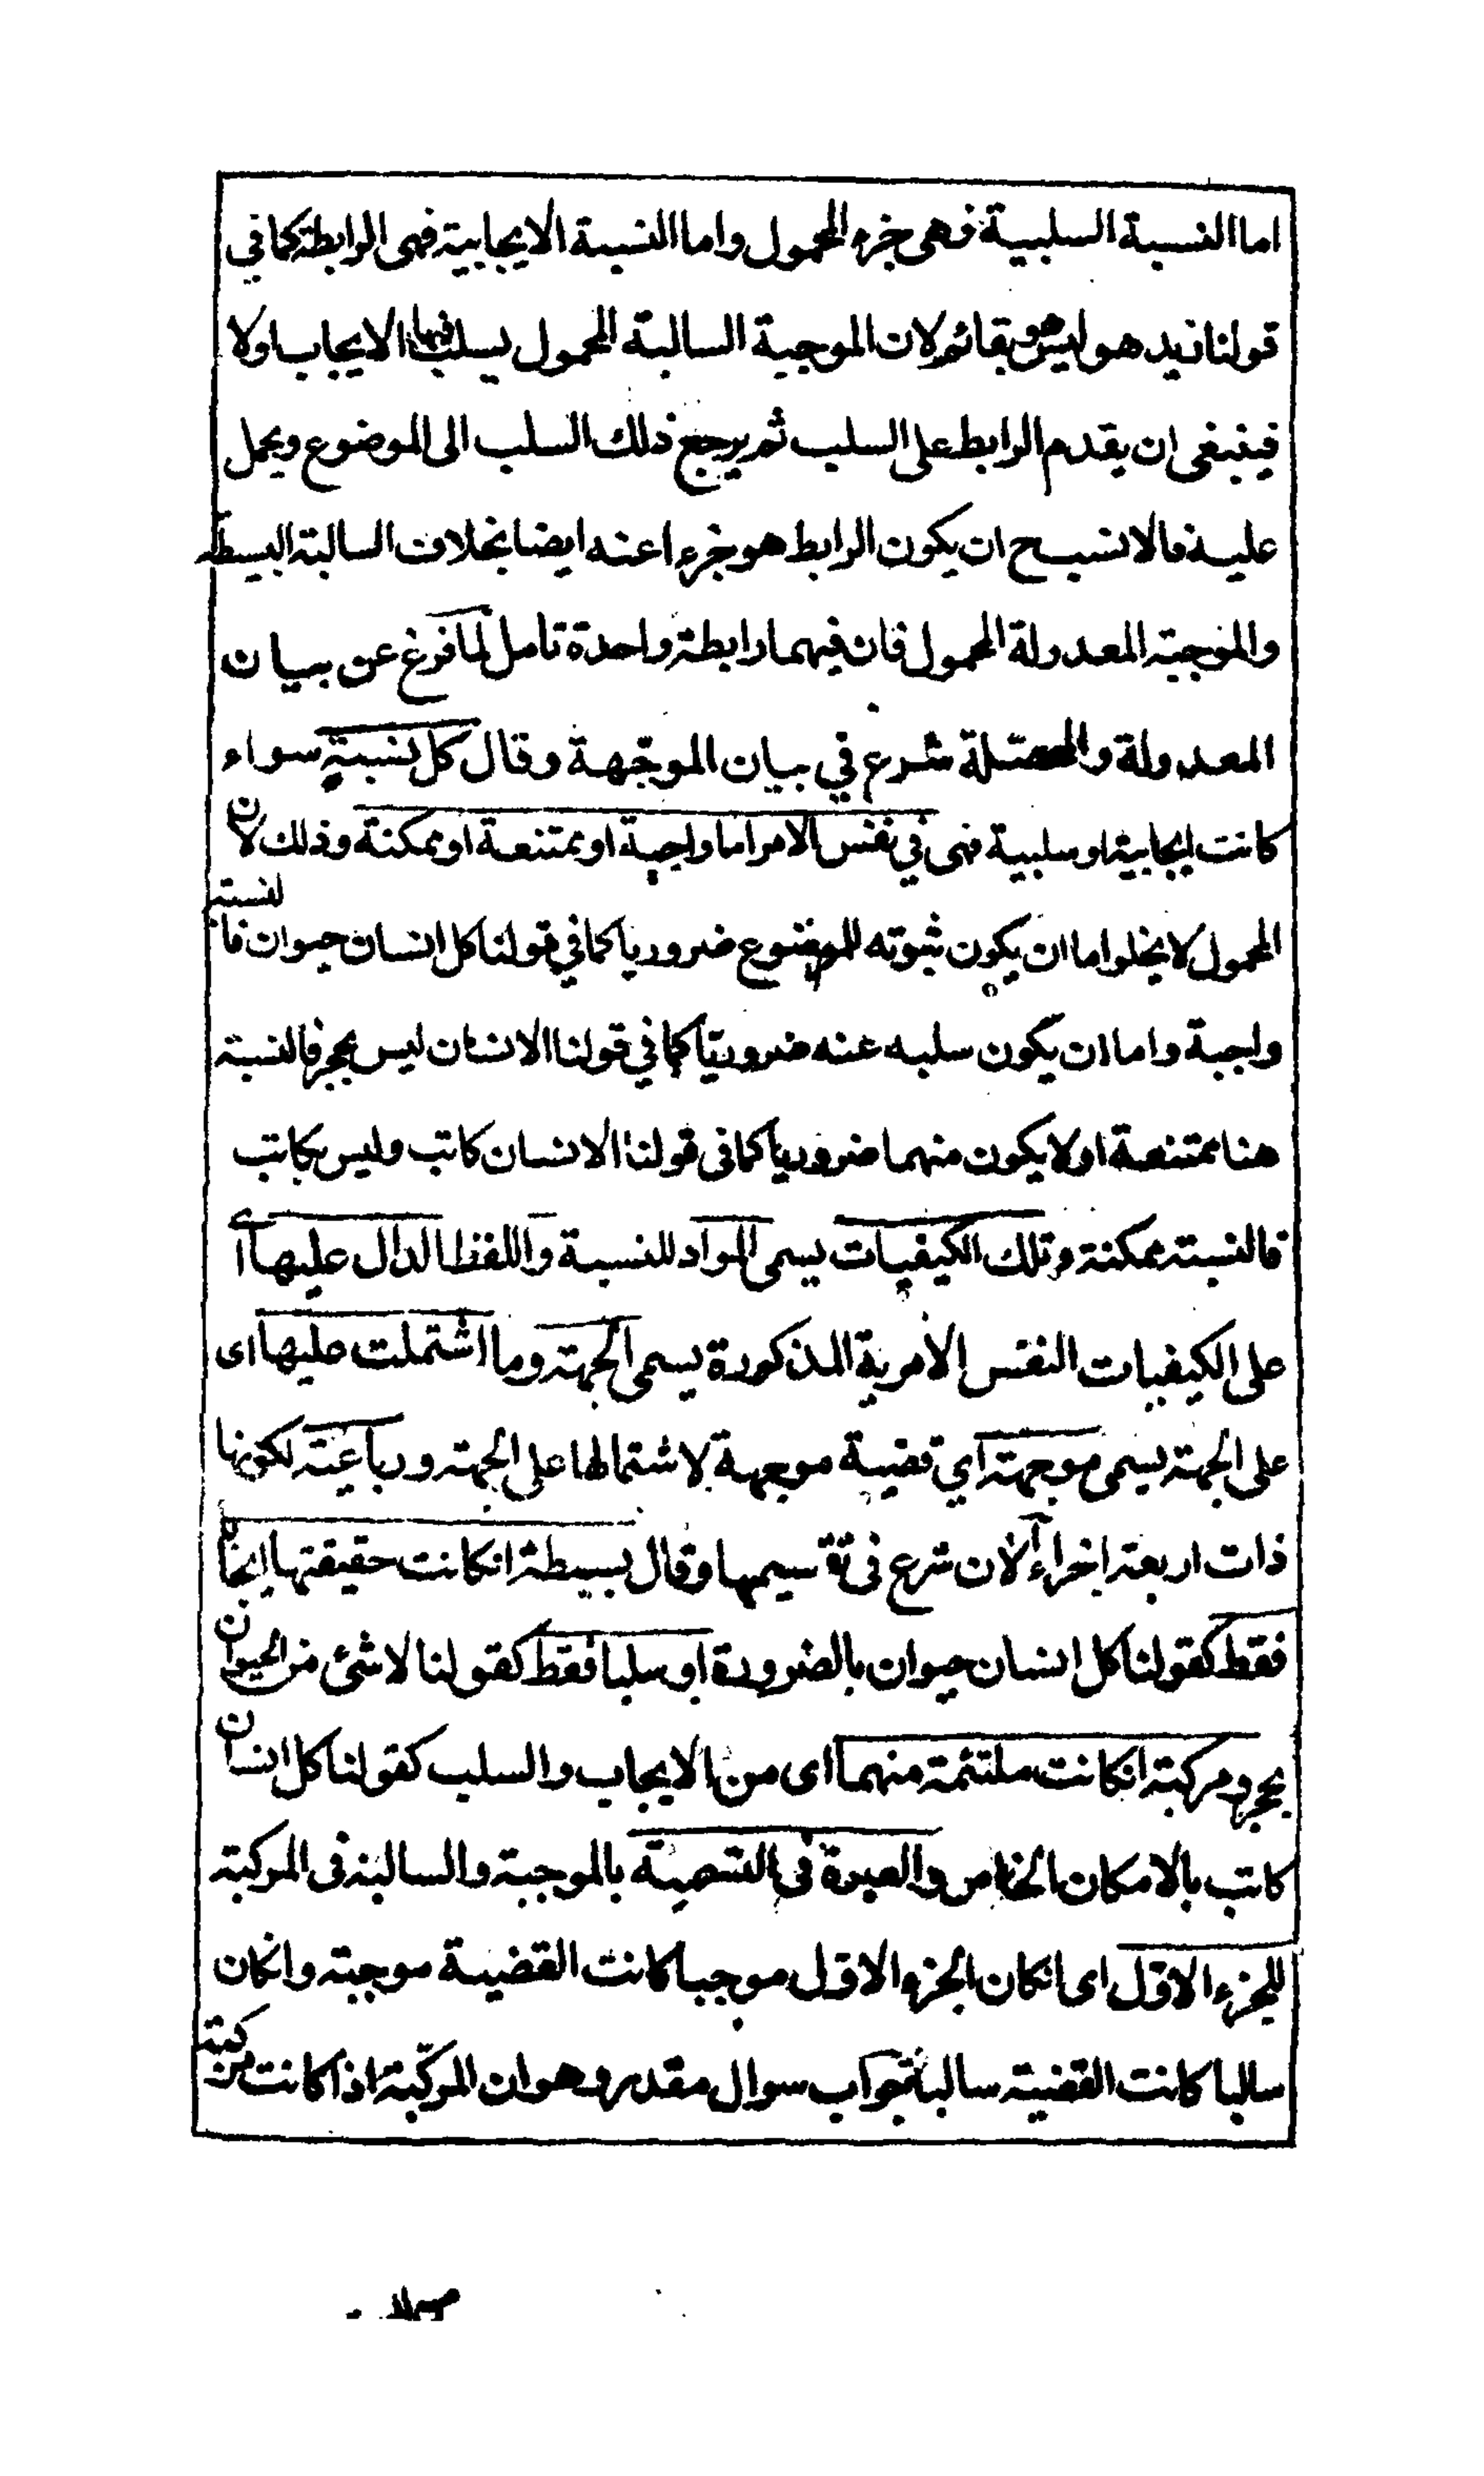 اما النسبة السلبية فهى جزء المحمول واما النسبة الايجابية فهى الرابطة كما في
قولنا زيد هو ليس هو بقائم لان الموجبة السالبة المحمول يسلب فيها الايجاب اولا
فينبغى ان يقدم الرابط على السلب ثم يرجع ذلك السلب الى الموضوع ويحمل
عليه فالانسب ح ان يكون الرابط هو جزء اعنه ايضا بخلاف السالبة البسيطة
والموجبة المعدولة المحمول فان فيهما رابطة واحدة تامل لما فرغ عن بيان
المعدولة والمحصلة شرع في بيان الموجّهة وقال كل نسبةٍ سواء
كانت ايجابية او سلبية فهى في نفس الامر اما واجبة او ممتنعة او ممكنة وذلك لان
المحمول لا يخلوا اما ان يكون ثبوته للموضوع ضروريا كما في قولنا كل انسان حيوان فالنسبة
واجبة واما ان يكون سلبه عنه ضروريّا كما في قولنا الانسان ليس بحجر فالنسبة
هنا ممتنعة او لا يكون منهما ضروريا كما فى قولنا الانسان كاتب وليس بكاتب
فالنسبة ممكنة وتلك الكيفيات يسمى المواد للنسبة واللفظ الدال عليها اى
على الكيفيات النفس الأمرية المذكورة يسمى الجهة وما اشتملت عليها اى
على الجهة يسمى موجهة اي قضية موجهة لاشتمالها على الجهة ورباعية لكونها
ذات اربعة اجزاء الآن شرع فى تقسيمها وقال بسيطة انكانت حقيقتها ايجابا
فقط كقولنا كل انسان حيوان بالضرورة او سلبا فقط كقولنا لا شئ من الحيوان
بحجر ومركبة انكانت ملتئمة منهما اى من الايجاب والسلب كقولنا كل انسان
كاتب بالامكان الخاص والعبرة فى التسمية بالموجبة والسالبة فى المركبة
للجزء الاوّل اى انكان الجزء الاوّل موجبا كانت القضية موجبة وانكان
سالبا كانت القضية سالبة جواب سوال مقدر وهو ان المركّبة اذا كانت مركبة